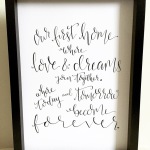 our first home
where
love & dreams
join together,
where
today and tomorrow
become
forever.